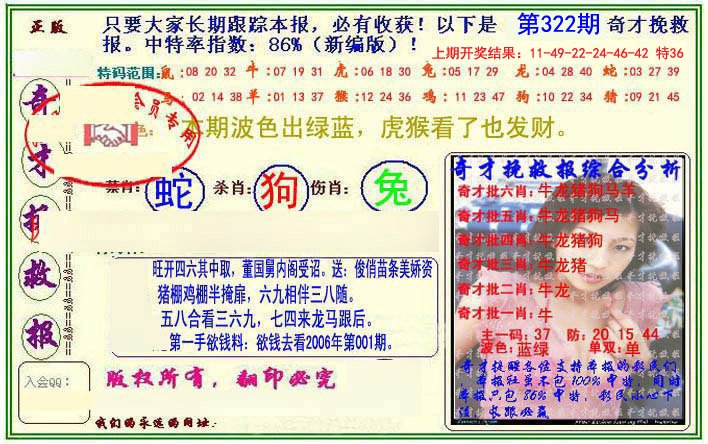 正版
只要大家长期跟踪本报，必有收获！以下是 第322期 奇才挽救
报。中特率指数：86%（新编版）！
上期开奖结果：11-49-22-24-46-42 特36
特码范围：鼠：08 20 32 牛：07 19 31 虎：06 18 30 兔：05 17 29 龙：04 28 40 蛇：03 27 39
02 14 38 羊：01 13 37 猴：12 24 36 鸡：11 23 47 狗：10 22 34 猪：09 21 45
会员专用
色：本期波色出绿蓝，虎猴看了也发财。
禁肖：蛇 杀肖：狗 伤肖：兔
奇
才
救
报
旺开四六其中取，董国舅内阁受诏。送：俊俏苗条美娇资
猪棚鸡棚半掩扉，六九相伴三八随。
五八合看三六九，七四来龙马跟后。
第一手欲钱料：欲钱去看2006年第001期。
入会QQ：
版权所有，翻印必究
我们的永远的网址：
奇才挽救报综合分析
奇才批六肖：牛龙猪狗马羊
奇才批五肖：牛龙猪狗马
奇才批四肖：牛龙猪狗
奇才批三肖：牛龙猪
奇才批二肖：牛龙
奇才批一肖：牛
主一码：37 防：20 15 44
波色：蓝绿 单双：单
奇才提醒各位支持本报的彩民们
，本报绝虽不包100%中特，但时
本报只包86%中特，彩民小心下
注，长跟必赢